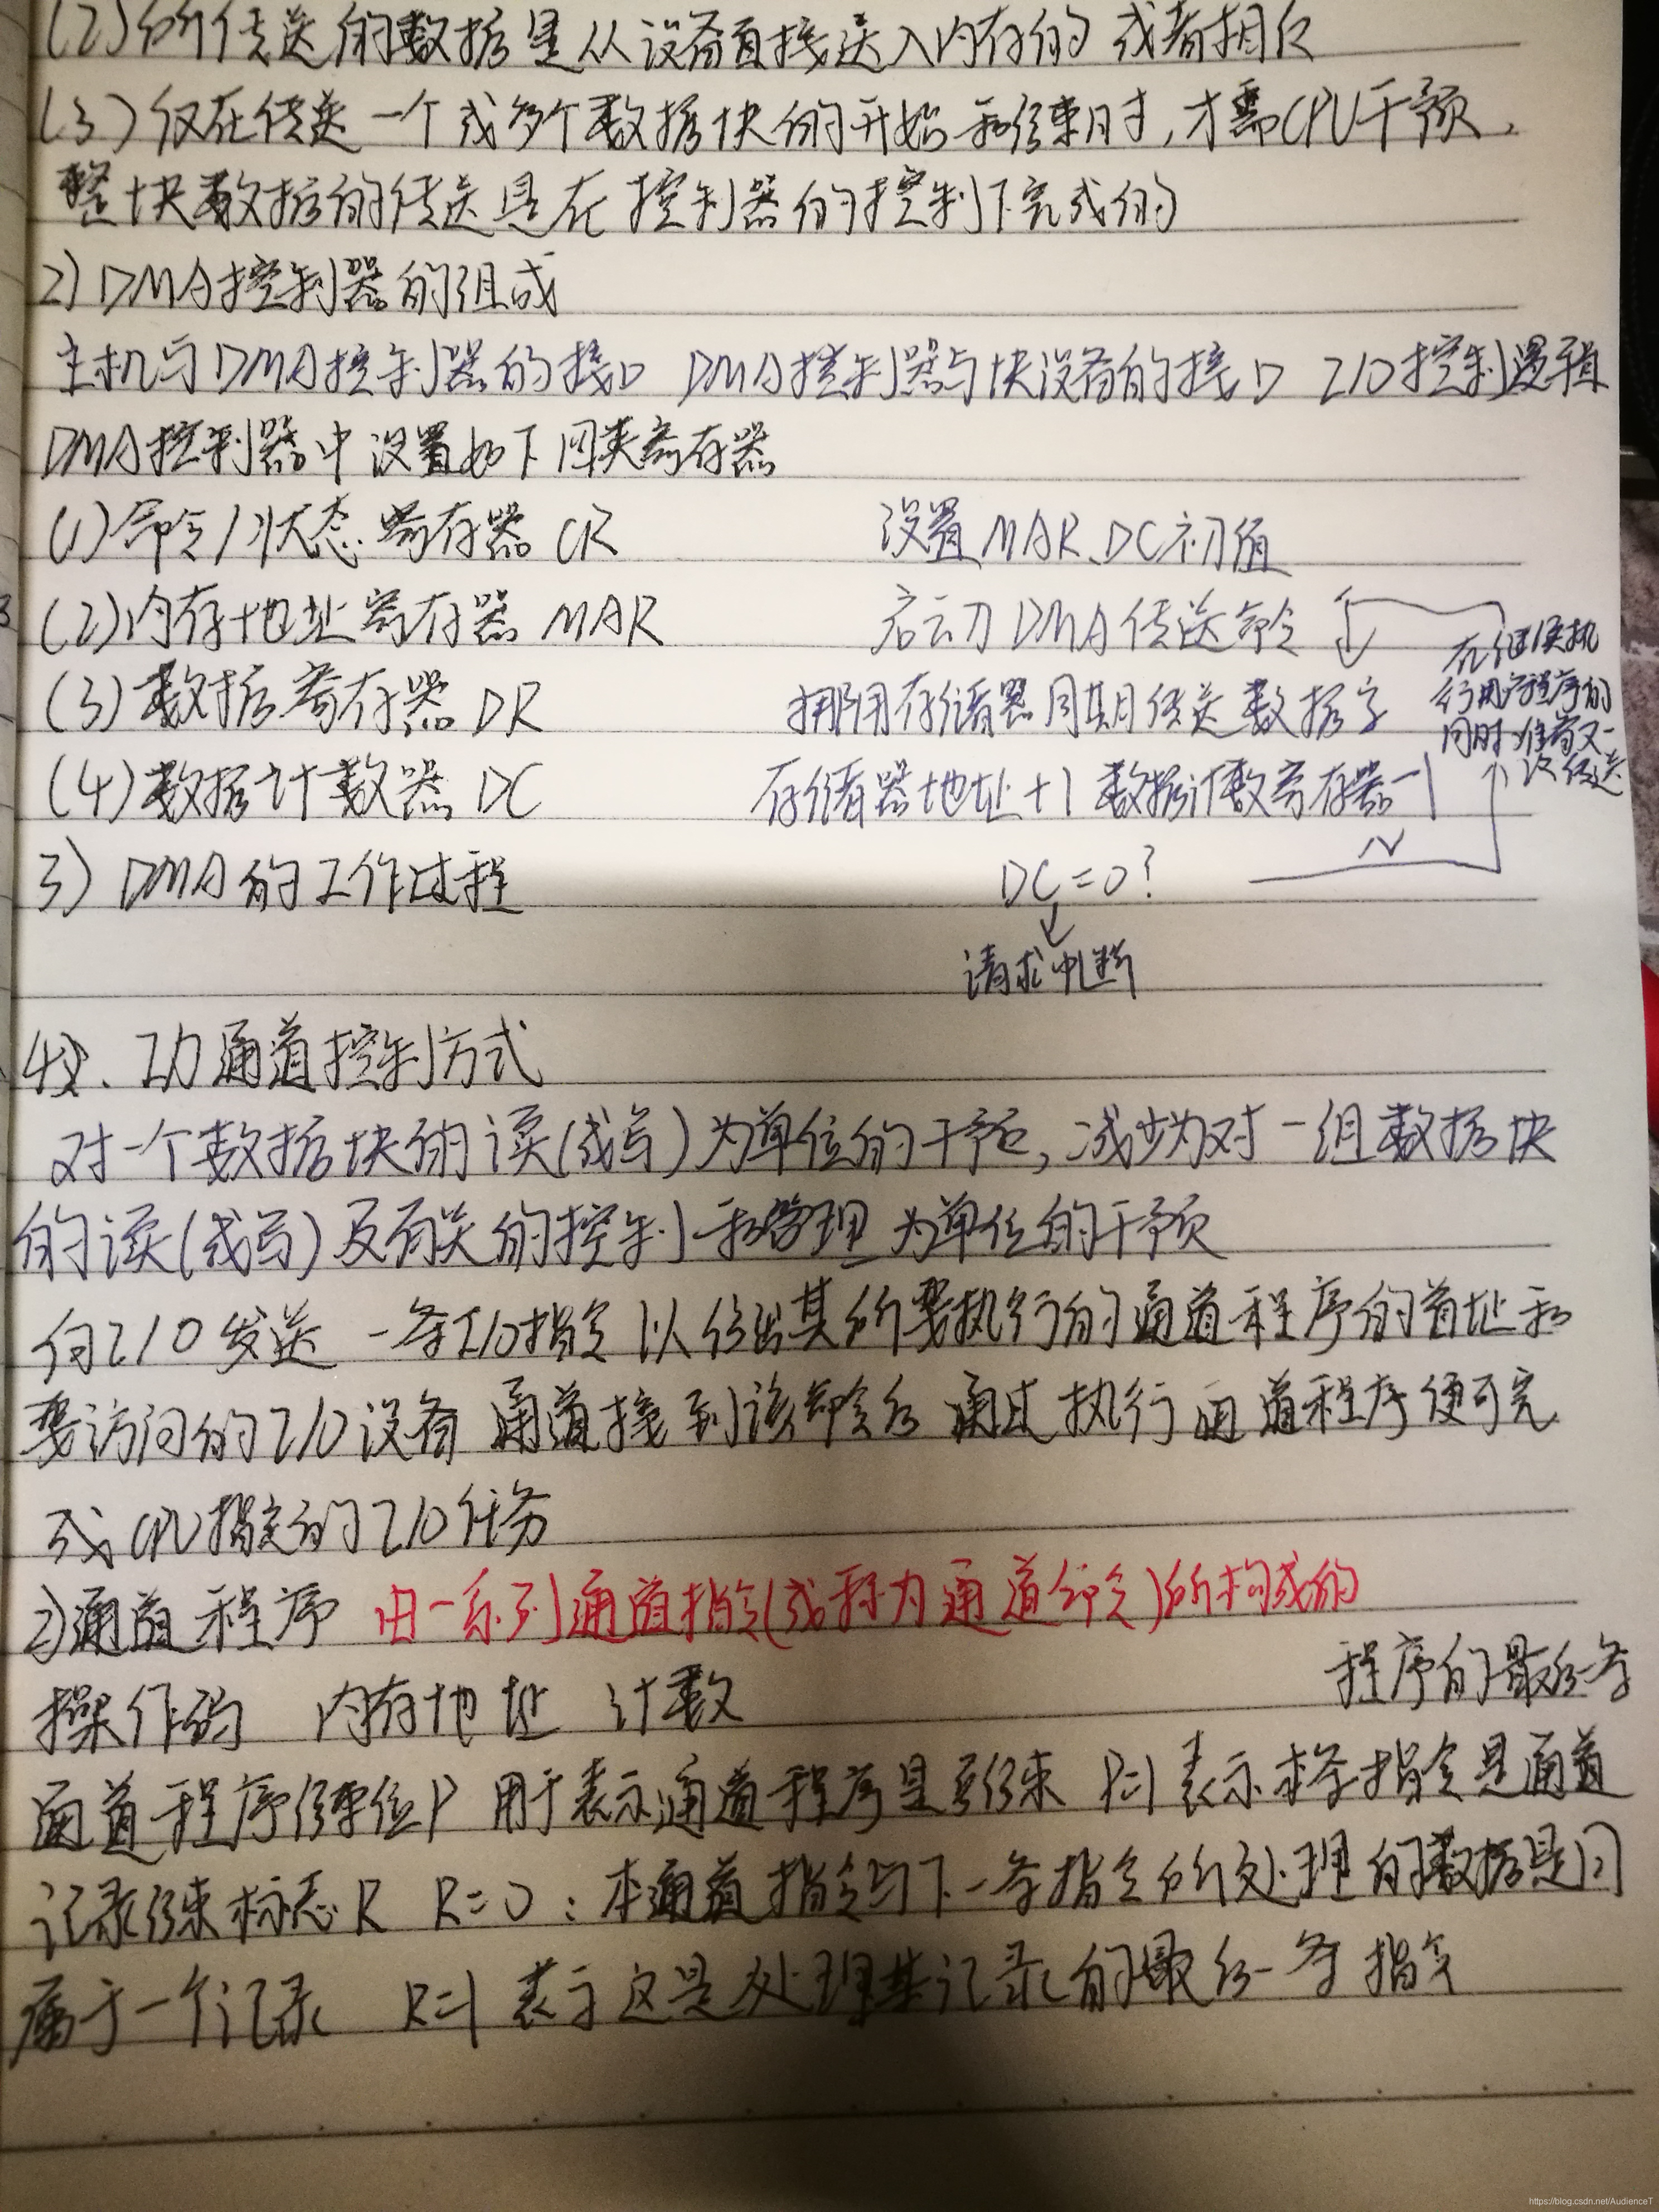 (2)所传送的数据是从设备直接送入内存的 或者相反
(3)仅在传送一个或多个数据块的开始和结束时,才需CPU干预,
整块数据的传送是在控制器的控制下完成的
2) DMA控制器的组成
主机与DMA控制器的接口 DMA控制器与块设备的接口 I/O控制逻辑
DMA控制器中设置如下四类寄存器
(1)命令/状态寄存器 CR
设置MAR、DC初值
(2)内存地址寄存器 MAR
启动DMA传送命令
(3)数据寄存器 DR
挪用存储器周期传送数据字
(4)数据计数器 DC
存储器地址+1 数据计数寄存器-1
在继续执
行用户程序的
同时 准备又一
次传送
N
3) DMA的工作过程
DC=0?
请求中断
4、I/O通道控制方式
对一个数据块的读(或写)为单位的干预,减少为对一组数据块
的读(或写)及有关的控制和管理为单位的干预
向I/O发送一条I/O指令 以给出其所要执行的通道程序的首址和
要访问的I/O设备 通道接到该命令后 通过执行通道程序便可完
成CPU指定的I/O任务
2)通道程序 由一系列通道指令(或称为通道命令)所构成的
操作码 内存地址 计数
程序的最后一条
通道程序结束位P 用于表示通道程序是否结束 P=1 表示本条指令是通道
记录结束标志R R=0:本通道指令与下一条指令所处理的数据是同
属于一个记录 R=1 表示这是处理某记录的最后一条指令
https://blog.csdn.net/AudienceT